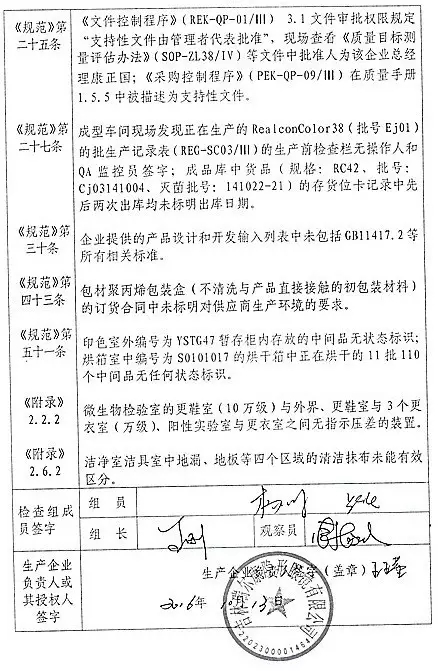 《规范》第二十五条
《文件控制程序》(REK-QP-01/Ⅲ) 3.1文件审批权限规定
“支持性文件由管理者代表批准”，现场查看《质量目标测
量评估办法》(SOP-ZL38/IV)等文件中批准人为该企业总经
理康正国；《采购控制程序》(PEK-QP-09/Ⅲ)在质量手册
1.5.5中被描述为支持性文件。
《规范》第二十七条
成型车问现场发现正在生产的RealconColor38(批号Ej01)
的批生产记录表(REG-SC03/Ⅲ)的生产前检查栏无操作人和
QA监控员签字；成品库中货品(规格：RC42、批号：
Cj03141004、灭菌批号：141022-21)的存货位卡记录中先
后两次出库均未标明出库日期。
《规范》第三十条
企业提供的产品设计和开发输入列表中未包括GB11417.2等
所有相关标准。
《规范》第四十三条
包材聚丙烯包装盒(不清洗与产品直接接触的初包装材料)
的订货合同中未标明对供应商生产环境的要求。
《规范》第五十一条
印色室外编号为YSTG47暂存柜内存放的中间品无状态标识；
烘箱室中编号为S0101017的烘干箱中正在烘干的11批110
个中间品无任何状态标识。
《附录》2.2.2
微生物检验室的更鞋室(10万级)与外界、更鞋室与3个更
衣室(万级)、阳性实验室与更衣室之间无指示压差的装置。
《附录》2.6.2
洁净室洁具室中地漏、地板等四个区域的清洁抹布未能有效
区分。
检查组成员签字
组 员
组 长
观察员
生产企业负责人或其授权人签字
生产企业负责人签字(盖章)
2016年 10月13日
2202300001464